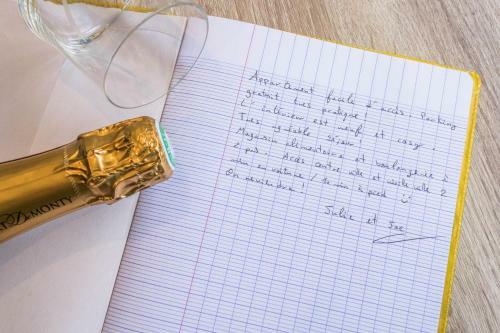 Appartement facile d'accès. Parking
gratuit très pratique !
L'intérieur est neuf et cosy.
Très agréable séjour !
Magasin alimentaire et boulangerie à
2 pas. Accès centre ville et vieille ville 2
min en voiture / 10 min à pied
On reviendra ! :)
Julie et
DEMONTY